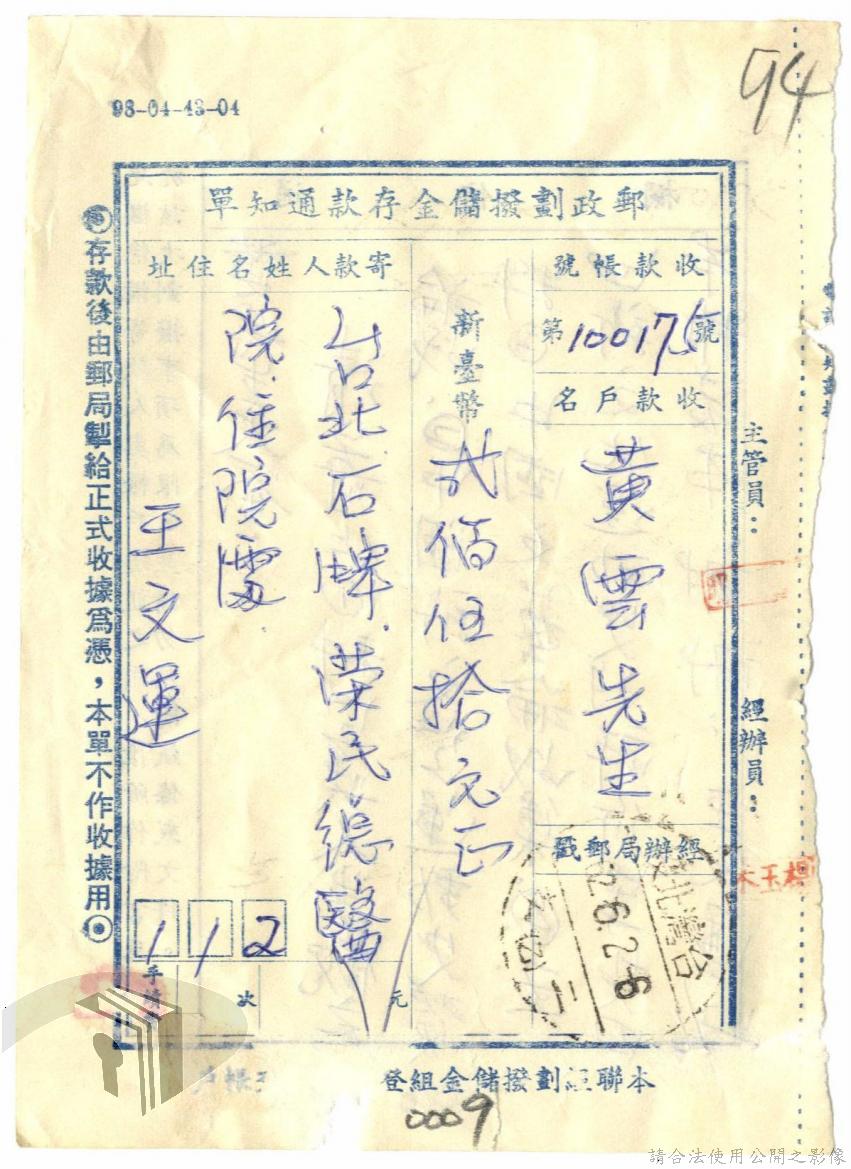 94
98-04-43-04
郵政劃撥儲金存款通知單
收款帳號
第100175號
收款戶名
黃雲先生
經辦局郵戳
台灣北
62.6.2-6
新臺幣
貳佰伍拾元正
元
寄款人姓名住址
台北.石牌.榮民總醫
院.住院處
王文運
112
手續
次
主管員：
經辦員：
存款後由郵局掣給正式收據為憑，本單不作收據用
本聯經劃撥儲金組登
帳戶
0009
請合法使用公開之影像